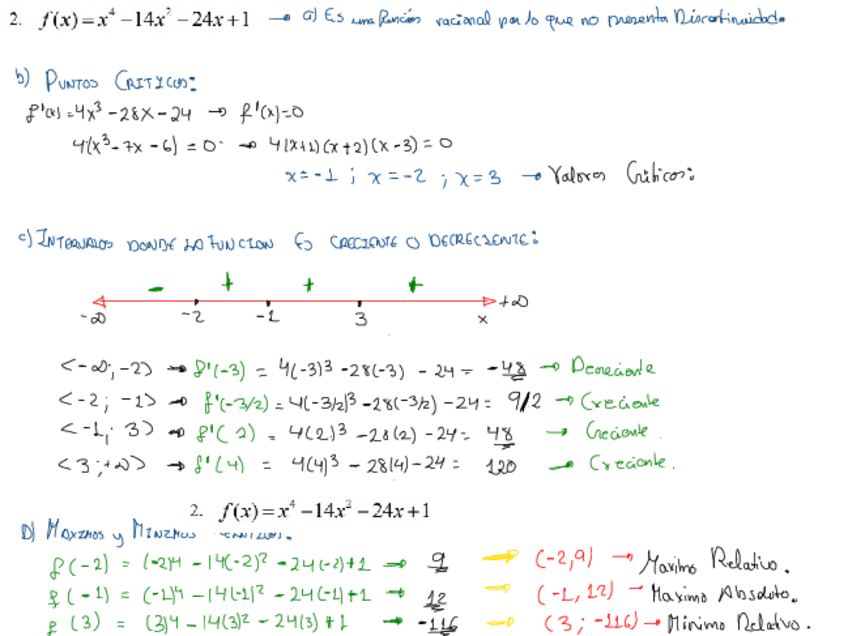 2. f(x) = x⁴ − 14x² − 24x + 1 → a) Es una función racional por lo que no presenta Discontinuidad.
b) PUNTOS CRITICOS:
f'(x) = 4x³ − 28x − 24 → f'(x)=0
4(x³ − 7x − 6) = 0 → 4(x+1)(x+2)(x−3) = 0
x = −1 ; x = −2 ; x = 3 → Valores Críticos:
c) INTERVALOS DONDE LA FUNCION ES CRECIENTE O DECRECIENTE:
− + + +
−∞ −2 −1 3 x +∞
<−∞; −2> → f'(−3) = 4(−3)³ − 28(−3) − 24 = −48 → Decreciente
<−2; −1> → f'(−3/2) = 4(−3/2)³ − 28(−3/2) − 24 = 9/2 → Creciente
<−1; 3> → f'(2) = 4(2)³ − 28(2) − 24 = 48 → Creciente.
<3; +∞> → f'(4) = 4(4)³ − 28(4) − 24 = 120 → Creciente.
2. f(x) = x⁴ − 14x² − 24x + 1
D) Maximos y Minimos
f(−2) = (−2)4 − 14(−2)² − 24(−2) + 1 → 9 → (−2,9) → Maximo Relativo.
f(−1) = (−1)4 − 14(−1)² − 24(−1) + 1 → 12 → (−1, 12) → Maximo Absoluto.
f(3) = (3)4 − 14(3)² − 24(3) + 1 → −116 → (3; −116) → Mínimo Relativo.